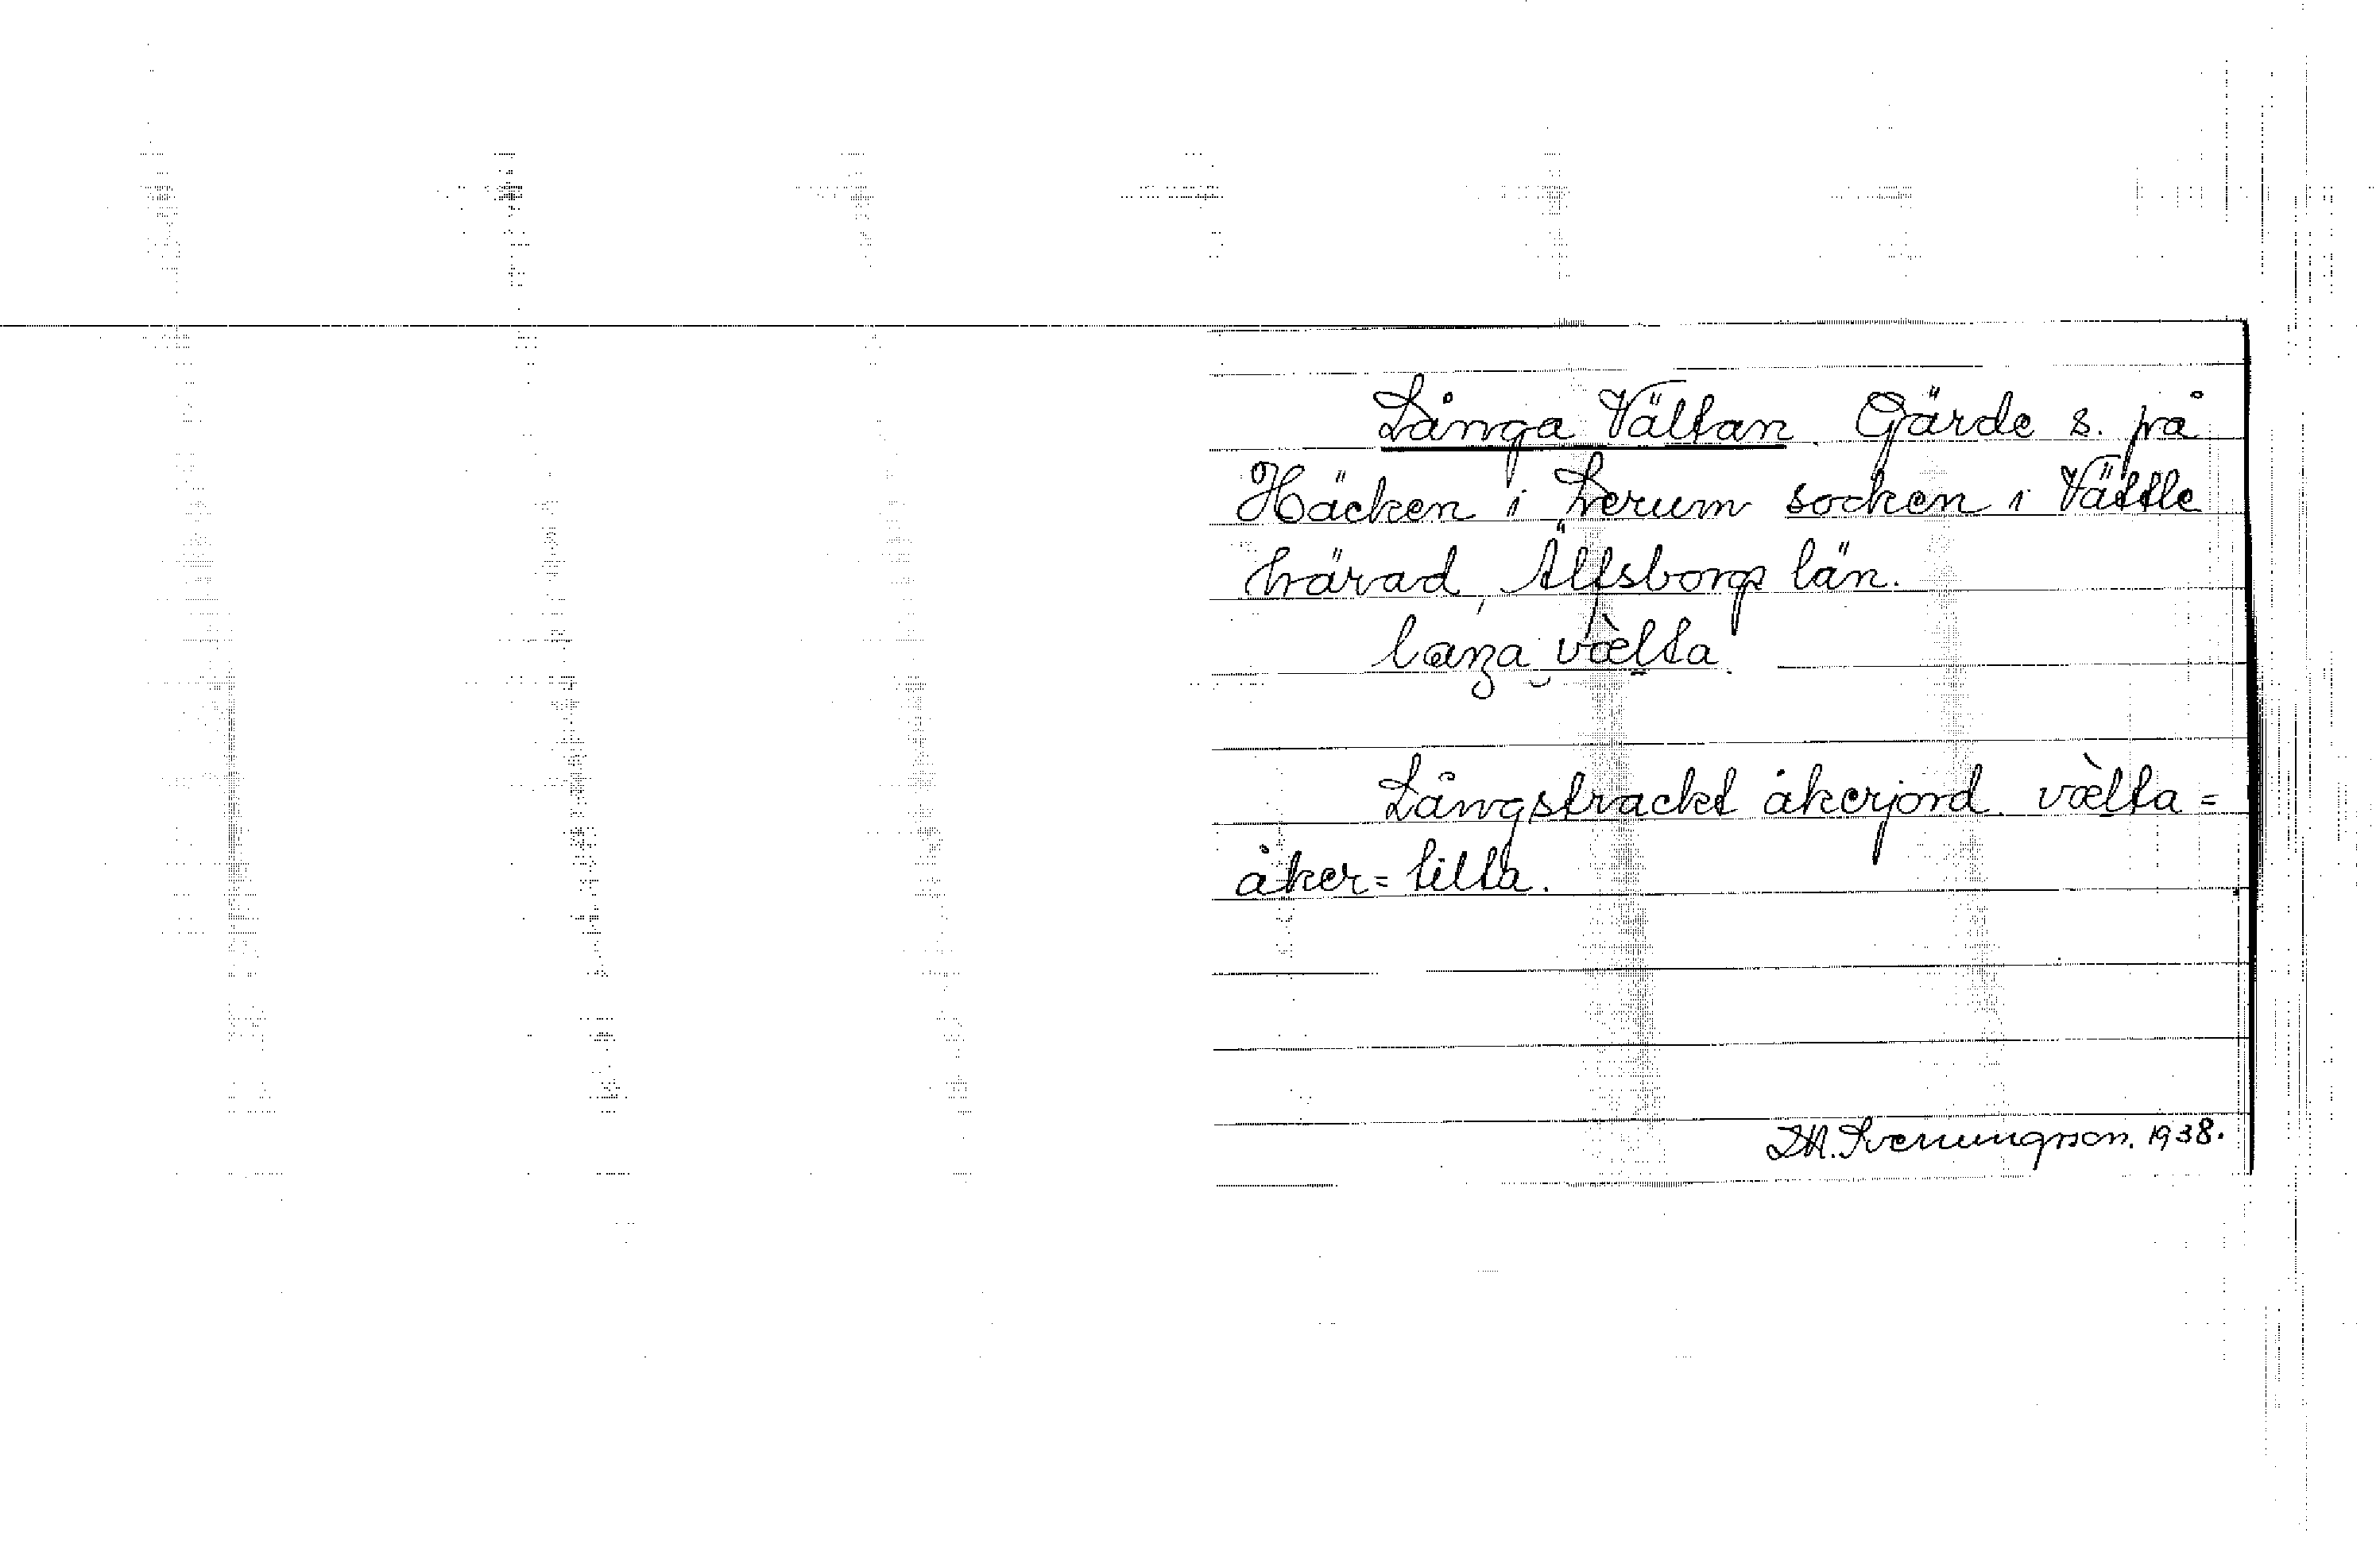 Långa Vältan. Gärde s. på
Häcken i Lerum socken i Vättle
härad, Älfsborgs län.
laŋa væ̀lta.
Långstrackt åkerjord. væ̀lta =
åker = tilta.
D.H. Svenungsson. 1938.